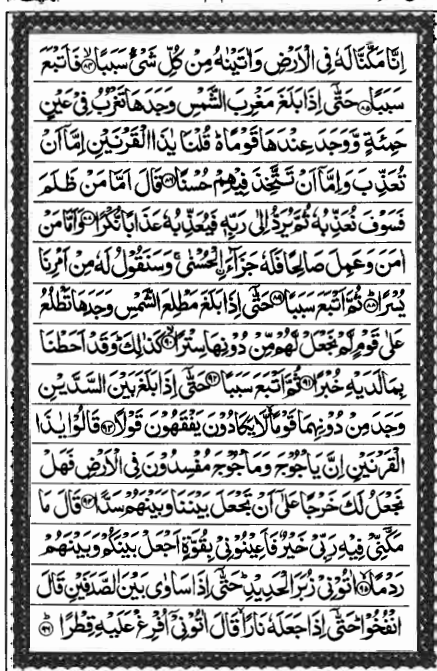 اِنَّا مَكَّنَّا لَهٗ فِی الْاَرْضِ وَاٰتَيْنٰهُ مِنْ كُلِّ شَیْءٍ سَبَبًا ۙ﴿۸۴﴾ فَاَتْبَعَ
سَبَبًا ﴿۸۵﴾ حَتّٰۤی اِذَا بَلَغَ مَغْرِبَ الشَّمْسِ وَجَدَهَا تَغْرُبُ فِیْ عَيْنٍ
حَمِئَةٍ وَّوَجَدَ عِنْدَهَا قَوْمًا ؕ قُلْنَا يٰذَا الْقَرْنَيْنِ اِمَّاۤ اَنْ
تُعَذِّبَ وَاِمَّاۤ اَنْ تَتَّخِذَ فِيْهِمْ حُسْنًا ﴿۸۶﴾ قَالَ اَمَّا مَنْ ظَلَمَ
فَسَوْفَ نُعَذِّبُهٗ ثُمَّ يُرَدُّ اِلٰی رَبِّهٖ فَيُعَذِّبُهٗ عَذَابًا نُّكْرًا ﴿۸۷﴾ وَاَمَّا مَنْ
اٰمَنَ وَعَمِلَ صَالِحًا فَلَهٗ جَزَآءَ ۨالْحُسْنٰی ۚ وَسَنَقُوْلُ لَهٗ مِنْ اَمْرِنَا
يُسْرًا ﴿۸۸﴾ ثُمَّ اَتْبَعَ سَبَبًا ﴿۸۹﴾ حَتّٰۤی اِذَا بَلَغَ مَطْلِعَ الشَّمْسِ وَجَدَهَا تَطْلُعُ
عَلٰی قَوْمٍ لَّمْ نَجْعَلْ لَّهُمْ مِّنْ دُوْنِهَا سِتْرًا ۙ﴿۹۰﴾ كَذٰلِكَ ؕ وَقَدْ اَحَطْنَا
بِمَا لَدَيْهِ خُبْرًا ﴿۹۱﴾ ثُمَّ اَتْبَعَ سَبَبًا ﴿۹۲﴾ حَتّٰۤی اِذَا بَلَغَ بَيْنَ السَّدَّيْنِ
وَجَدَ مِنْ دُوْنِهِمَا قَوْمًا ۙ لَّا يَكَادُوْنَ يَفْقَهُوْنَ قَوْلًا ﴿۹۳﴾ قَالُوْا يٰذَا
الْقَرْنَيْنِ اِنَّ يَاْجُوْجَ وَمَاْجُوْجَ مُفْسِدُوْنَ فِی الْاَرْضِ فَهَلْ
نَجْعَلُ لَكَ خَرْجًا عَلٰۤی اَنْ تَجْعَلَ بَيْنَنَا وَبَيْنَهُمْ سَدًّا ﴿۹۴﴾ قَالَ مَا
مَكَّنِّیْ فِيْهِ رَبِّیْ خَيْرٌ فَاَعِيْنُوْنِیْ بِقُوَّةٍ اَجْعَلْ بَيْنَكُمْ وَبَيْنَهُمْ
رَدْمًا ۙ﴿۹۵﴾ اٰتُوْنِیْ زُبَرَ الْحَدِيْدِ ؕ حَتّٰۤی اِذَا سَاوٰی بَيْنَ الصَّدَفَيْنِ قَالَ
انْفُخُوْا ؕ حَتّٰۤی اِذَا جَعَلَهٗ نَارًا ۙ قَالَ اٰتُوْنِیْۤ اُفْرِغْ عَلَيْهِ قِطْرًا ؕ﴿۹۶﴾